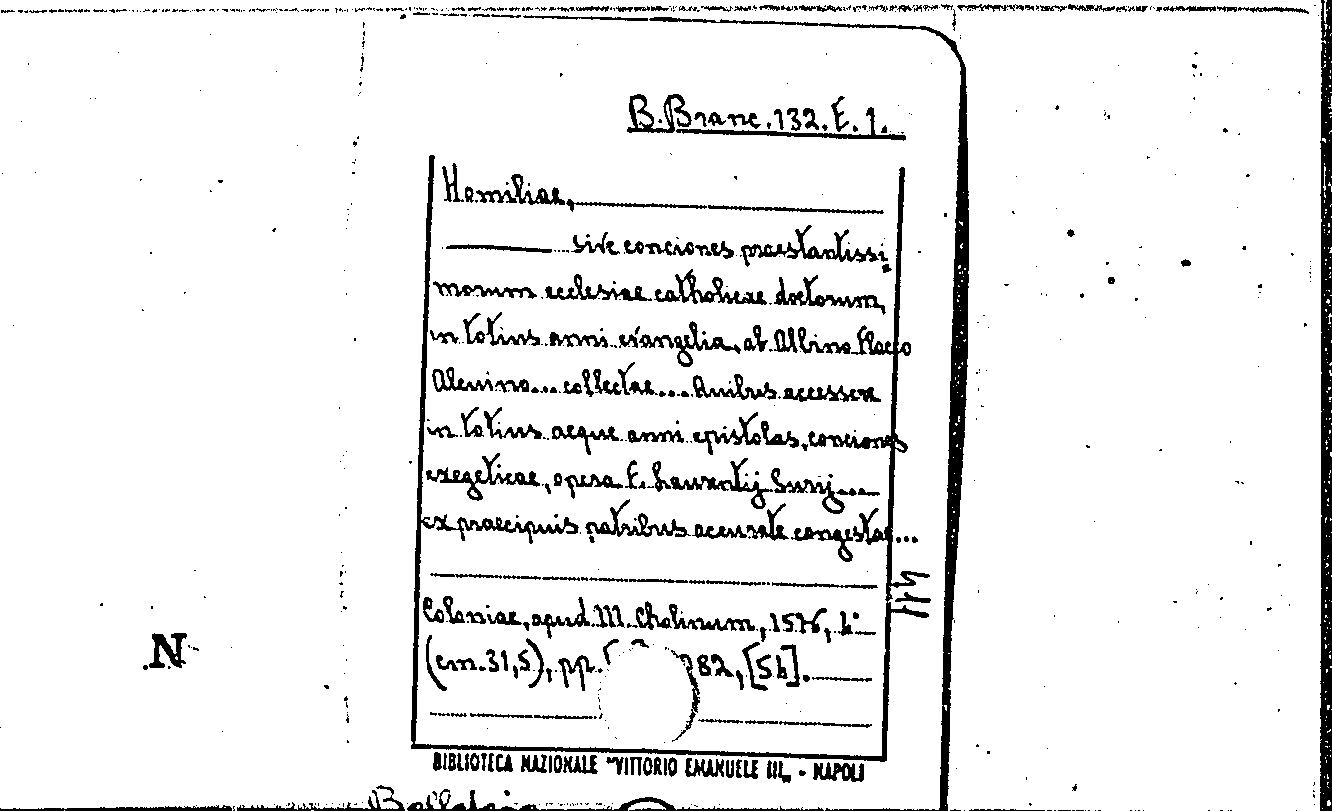 B. Branc. 132. E. 1.
Homiliae,
sive conciones praestantissi
morum ecclesiae catholicae doctorum,
in totius anni evangelia, ab Albino Flacco
Alcuino... collectae... Quibus accessere
in totius aeque anni epistolas, conciones
exegeticae, opera F. Laurentij Surij...
ex praecipuis patribus accurate congestae...
Coloniae, apud M. Cholinum, 1576,
(cm. 31,5), pp. 82,
N
BIBLIOTECA NAZIONALE "VITTORIO EMANUELE III„ - NAPOLI